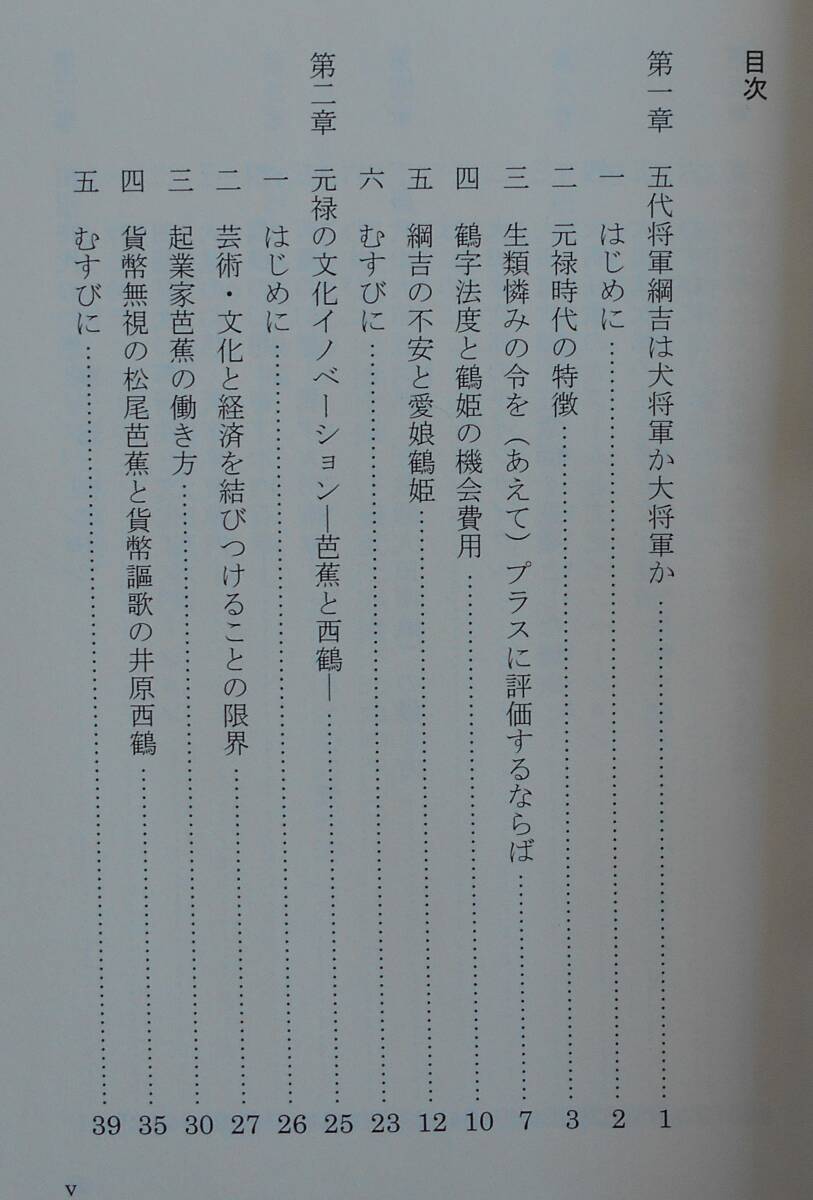 目次
第一章　五代将軍綱吉は犬将軍か大将軍か…………1
一　はじめに…………2
二　元禄時代の特徴…………3
三　生類憐みの令を（あえて）プラスに評価するならば…………7
四　鶴字法度と鶴姫の機会費用…………10
五　綱吉の不安と愛娘鶴姫…………12
六　むすびに…………23
第二章　元禄の文化イノベーション―芭蕉と西鶴―…………25
一　はじめに…………26
二　芸術・文化と経済を結びつけることの限界…………27
三　起業家芭蕉の働き方…………30
四　貨幣無視の松尾芭蕉と貨幣謳歌の井原西鶴…………35
五　むすびに…………39
v